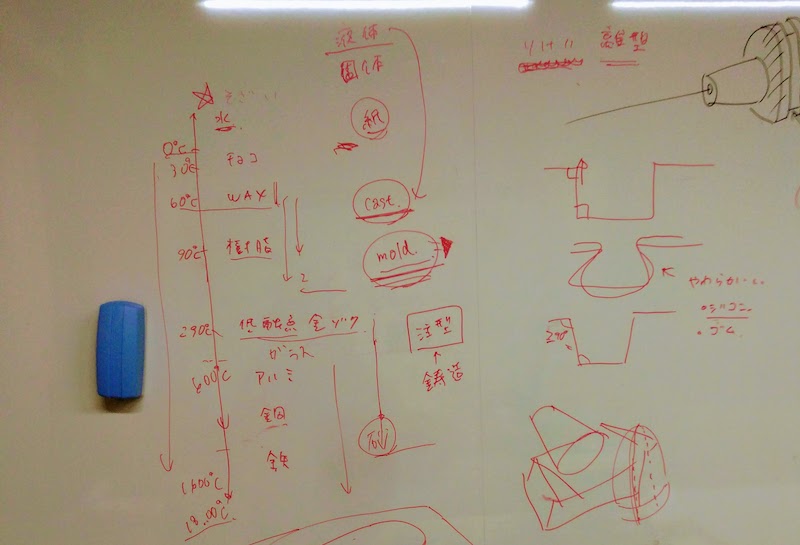 液体
固体
紙
水
0℃
30℃
チョコ
60℃
WAX
cast.
90℃
樹脂
mold.
2
290℃
低融点金ゾク
注型
ガラス
600℃
アルミ
鋳造
銅
石
鉄
1600℃
1800℃
離型
やわらかい
・シリコン
・ゴム